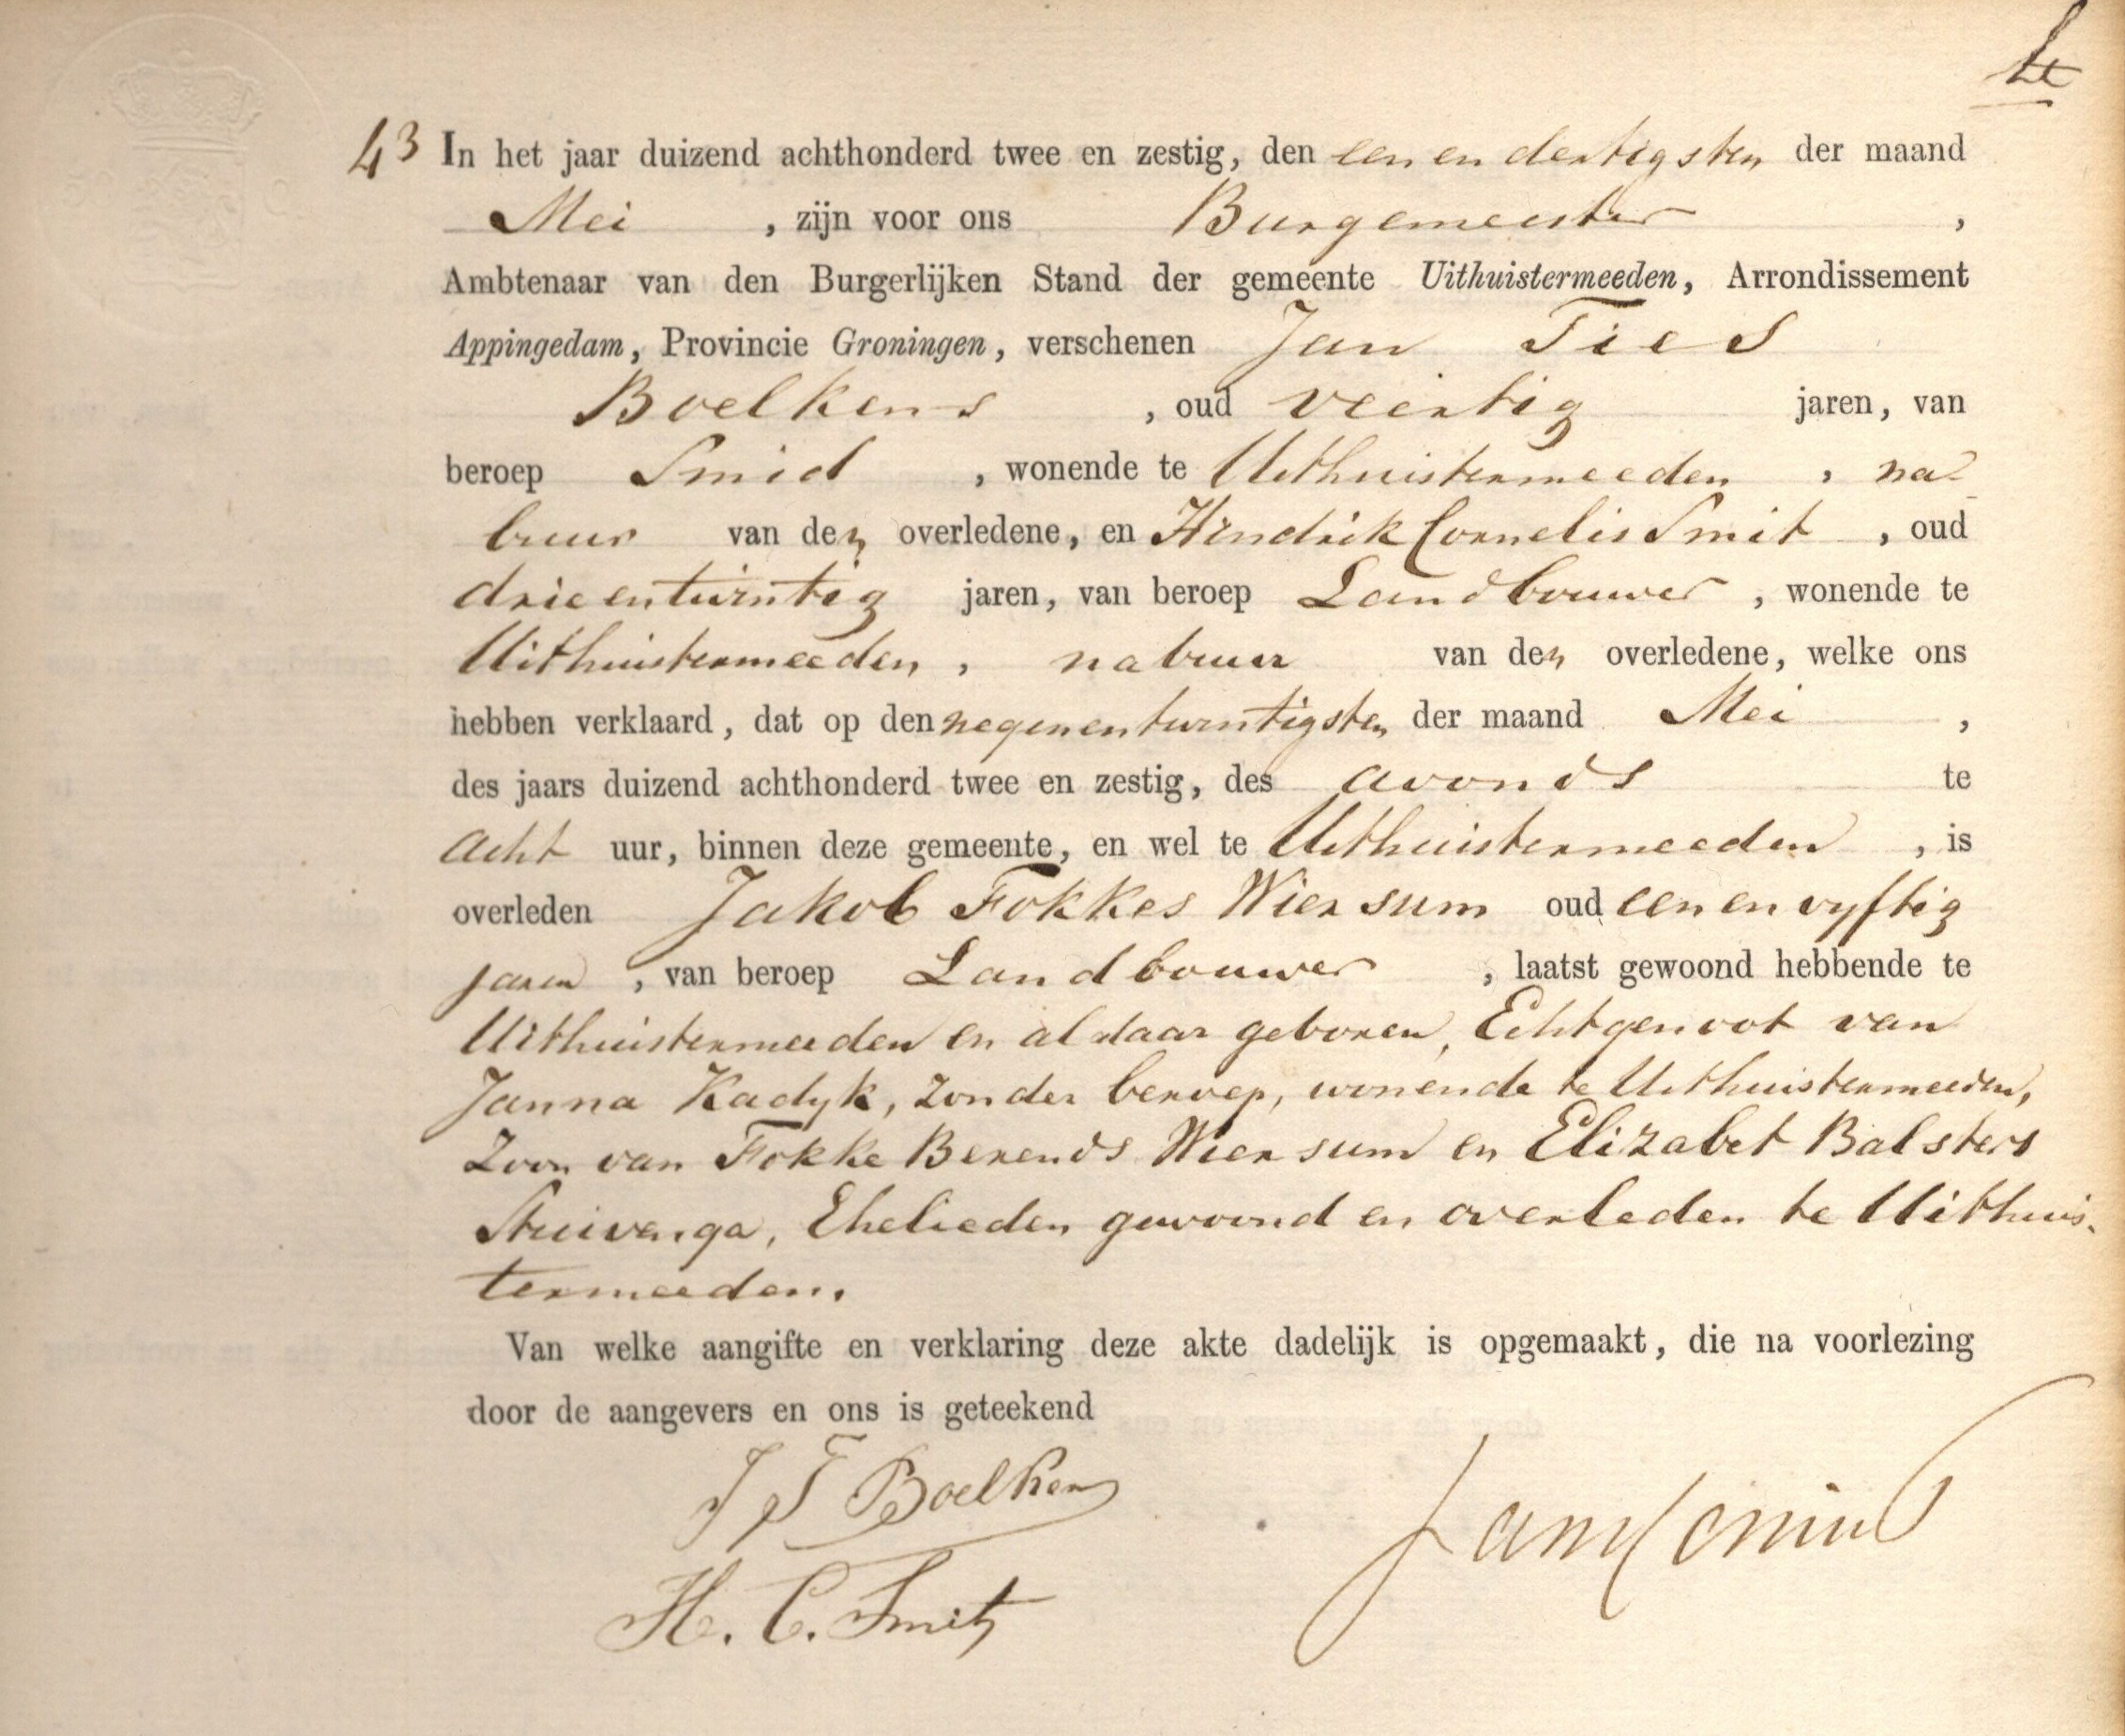 43 In het jaar duizend achthonderd twee en zestig, den een en dertigsten der maand
Mei , zijn voor ons Burgemeester ,
Ambtenaar van den Burgerlijken Stand der gemeente Uithuistermeeden, Arrondissement
Appingedam, Provincie Groningen, verschenen Jan Ties
Boelkens , oud veertig jaren, van
beroep Smid , wonende te Uithuistermeeden , na-
buur van den overledene, en Hindrik Cornelis Smit , oud
drieentwintig jaren, van beroep Landbouwer , wonende te
Uithuistermeeden , nabuur van den overledene, welke ons
hebben verklaard, dat op den negenentwintigsten der maand Mei ,
des jaars duizend achthonderd twee en zestig, des avonds te
acht uur, binnen deze gemeente, en wel te Uithuistermeeden , is
overleden Jakob Fokkes Wiersum oud een en vyftig
jaren , van beroep Landbouwer , laatst gewoond hebbende te
Uithuistermeeden en aldaar geboren, Echtgenoot van
Janna Kadyk, zonder beroep, wonende te Uithuistermeeden,
Zoon van Fokke Berends Wiersum en Elizabet Balsters
Stuivenga, Ehelieden gewoond en overleden te Uithuis-
termeeden.
Van welke aangifte en verklaring deze akte dadelijk is opgemaakt, die na voorlezing
door de aangevers en ons is geteekend
J T Boelkens
H. C. Smit